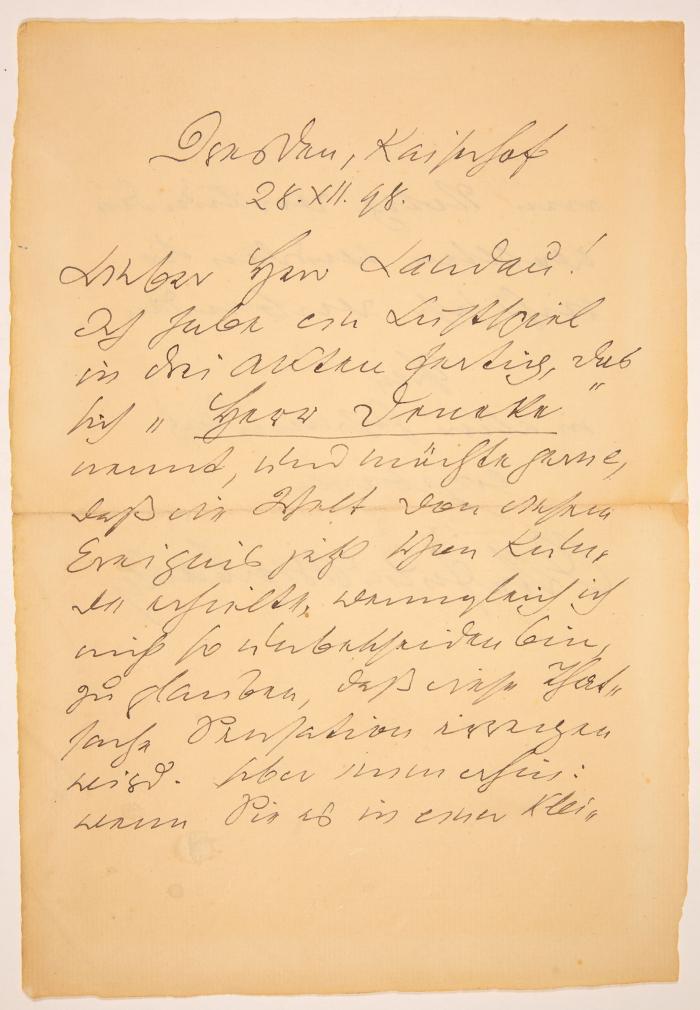 Dresden, Kaiserhof
28.XII.98.
Lieber Herr Landau!
Ich habe ein Lustspiel
in drei Akten fertig, das
sich „Herr Deneke"
nennt, und möchte gerne,
daß die Welt von diesem
Ereignis jetzt schon Kun„
de erhielte, wenngleich ich
nicht so unbescheiden bin,
zu glauben, daß diese That„
sache Sensation erregen
wird. Aber immerhin:
wenn Sie es in einer klei„